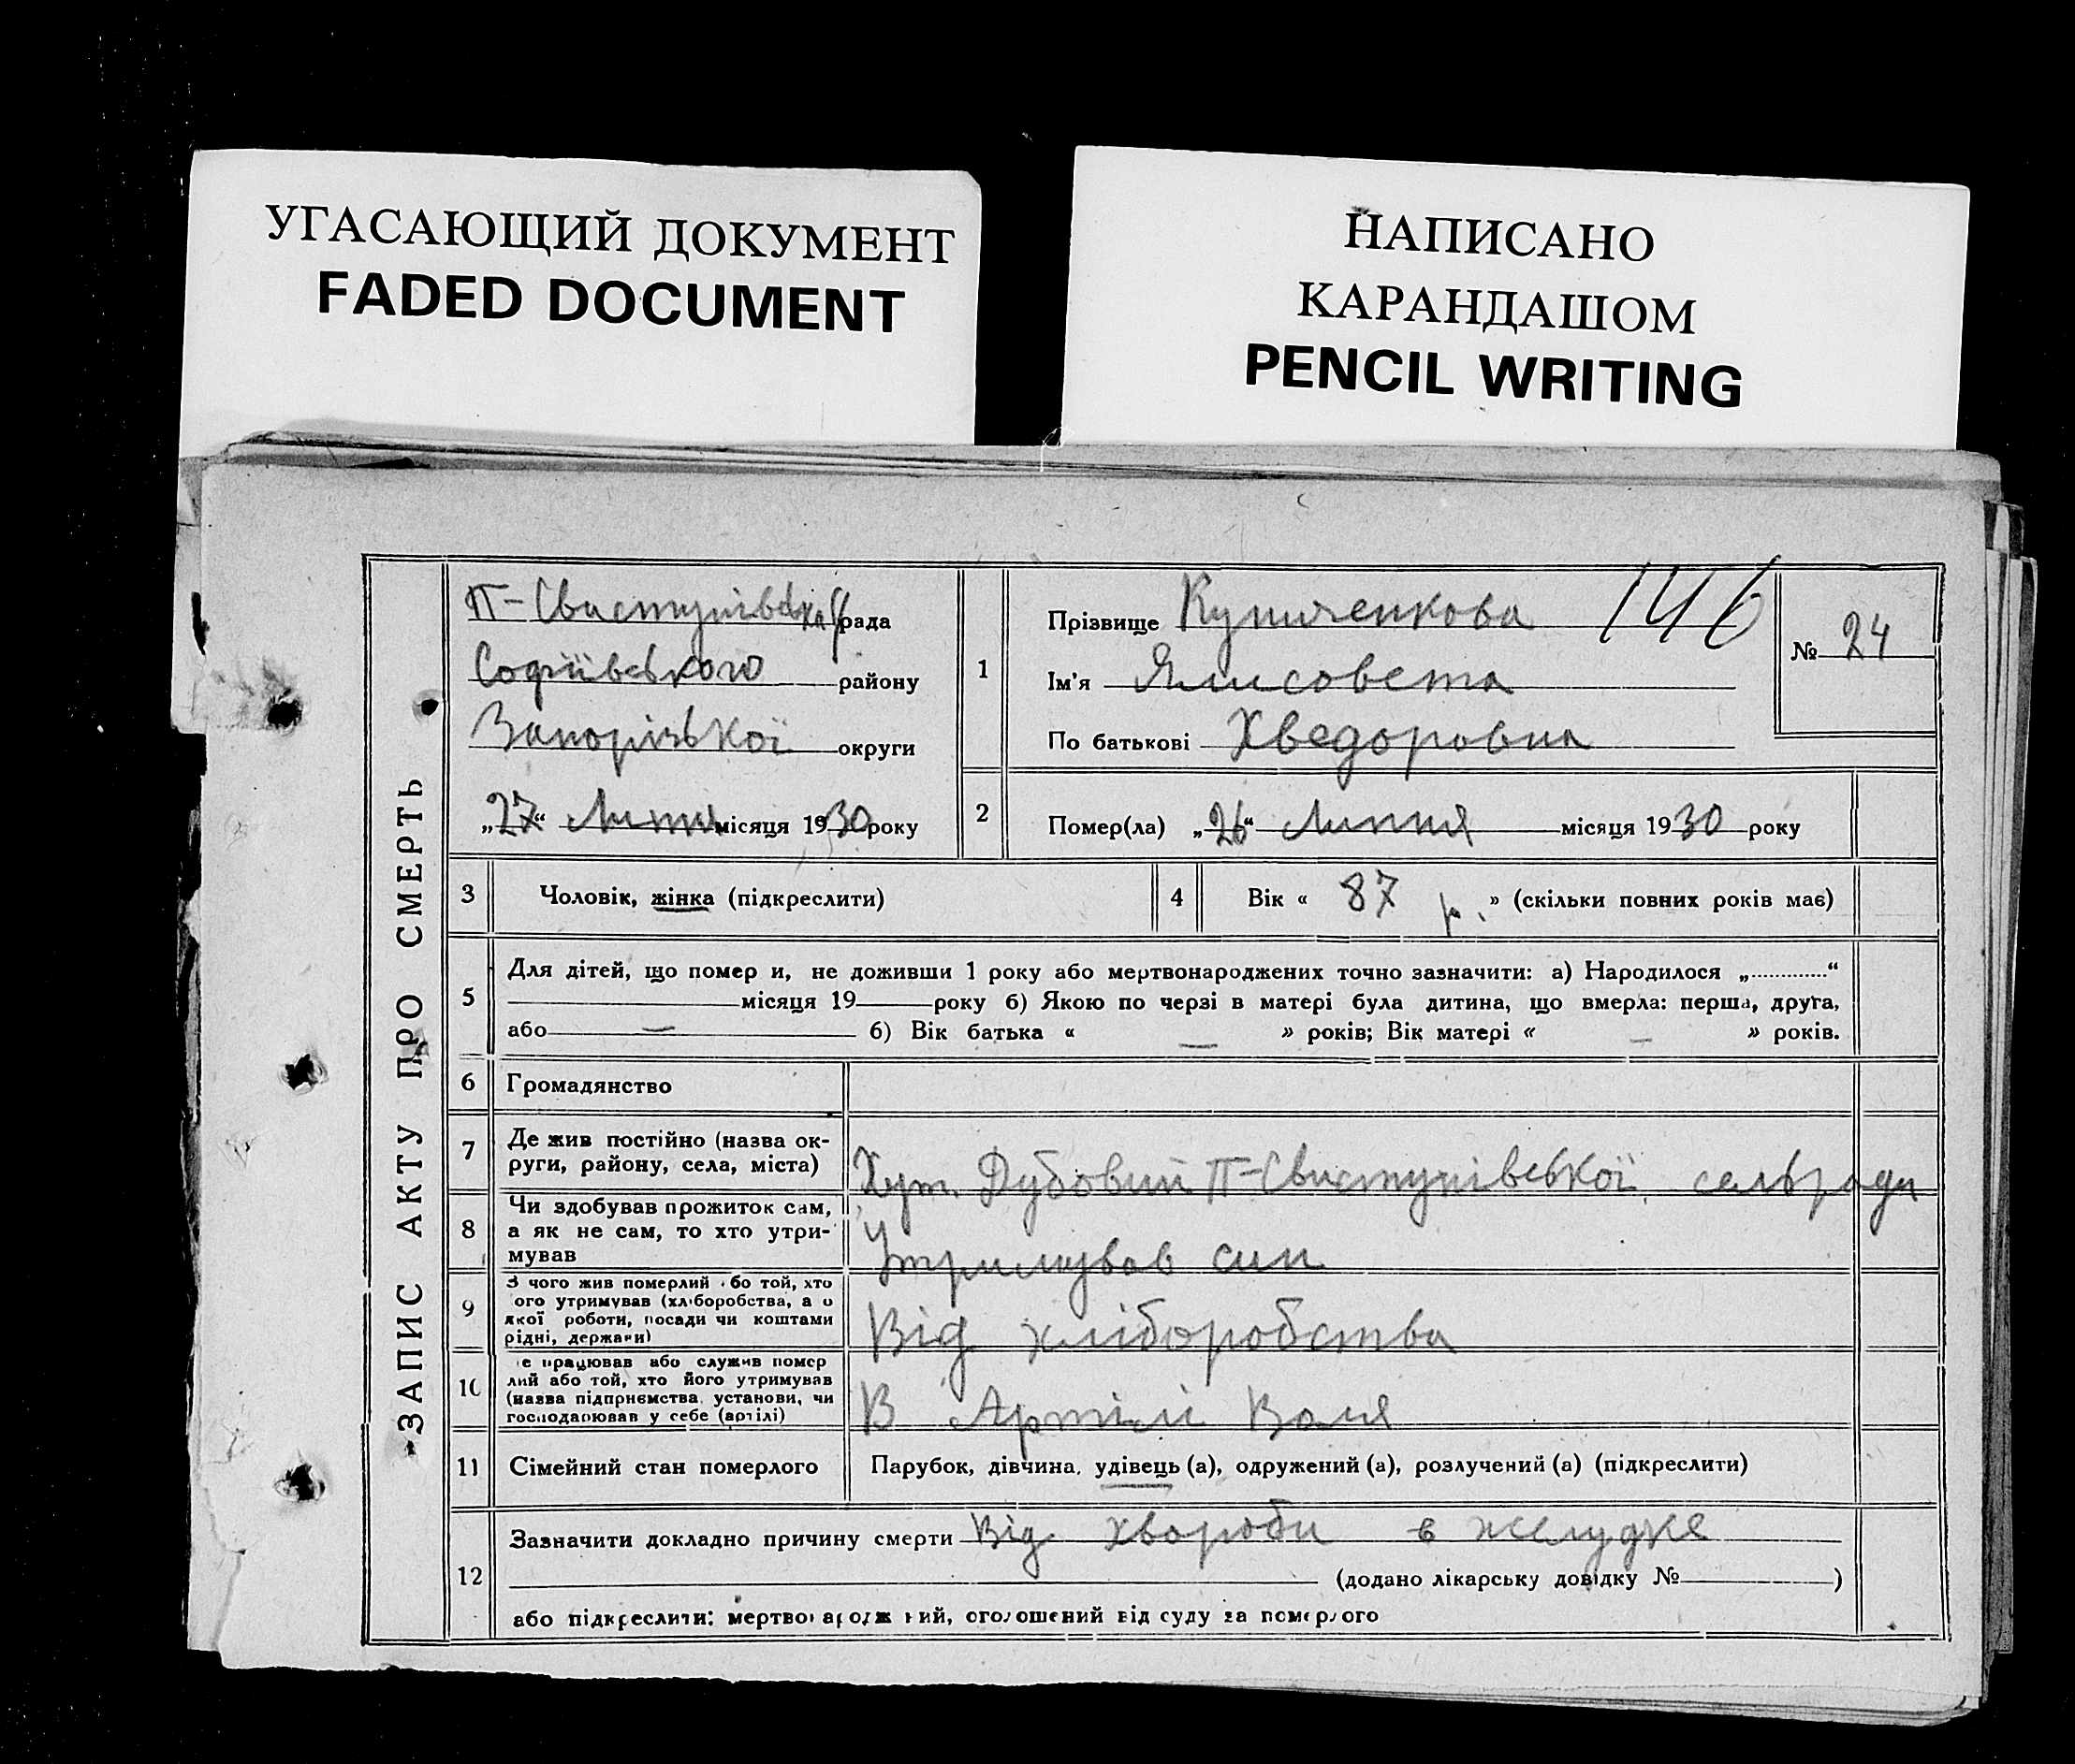 УГАСАЮЩИЙ ДОКУМЕНТ
FADED DOCUMENT
НАПИСАНО
КАРАНДАШОМ
PENCIL WRITING
ЗАПИС АКТУ ПРО СМЕРТЬ
П-Свистунівська рада
Софіївського району
Запорізької округи
„27“ Липня місяця 1930 року
1
Прізвище 146
Ім'я Ялисовета
По батькові Хведоровна
№ 24
2 Помер(ла) „26“ Липня місяця 1930 року
3 Чоловік, жінка (підкреслити)
4 Вік « 87 р. » (скільки повних років має)
5 Для дітей, що помер и, не доживши 1 року або мертвонароджених точно зазначити: а) Народилося „.............“
місяця 19 року б) Якою по черзі в матері була дитина, що вмерла: перша, друга,
або — б) Вік батька « — » років; Вік матері « — » років.
6 Громадянство
7 Де жив постійно (назва ок-
руги, району, села, міста)
Хут. Дубовий П-Свистунівської сельради
8 Чи здобував прожиток сам,
а як не сам, то хто утри-
мував
Утримував син
9 З чого жив померлий або той, хто
ого утримував (хліборобства, а о
якої роботи, посади чи коштами
рідні, держави)
Від хліборобства
10 е працював або служив помер
лий або той, хто його утримував
(назва підприємства, установи, чи
господарював у себе (артілі)
В Артілі Воля
11 Сімейний стан померлого
Парубок, дівчина, удівець (а), одружений (а), розлучений (а) (підкреслити)
12 Зазначити докладно причину смерти Від хвороби в желудке
(додано лікарську довідку № )
або підкреслити: мертвонароджений, оголошений від суду за померлого